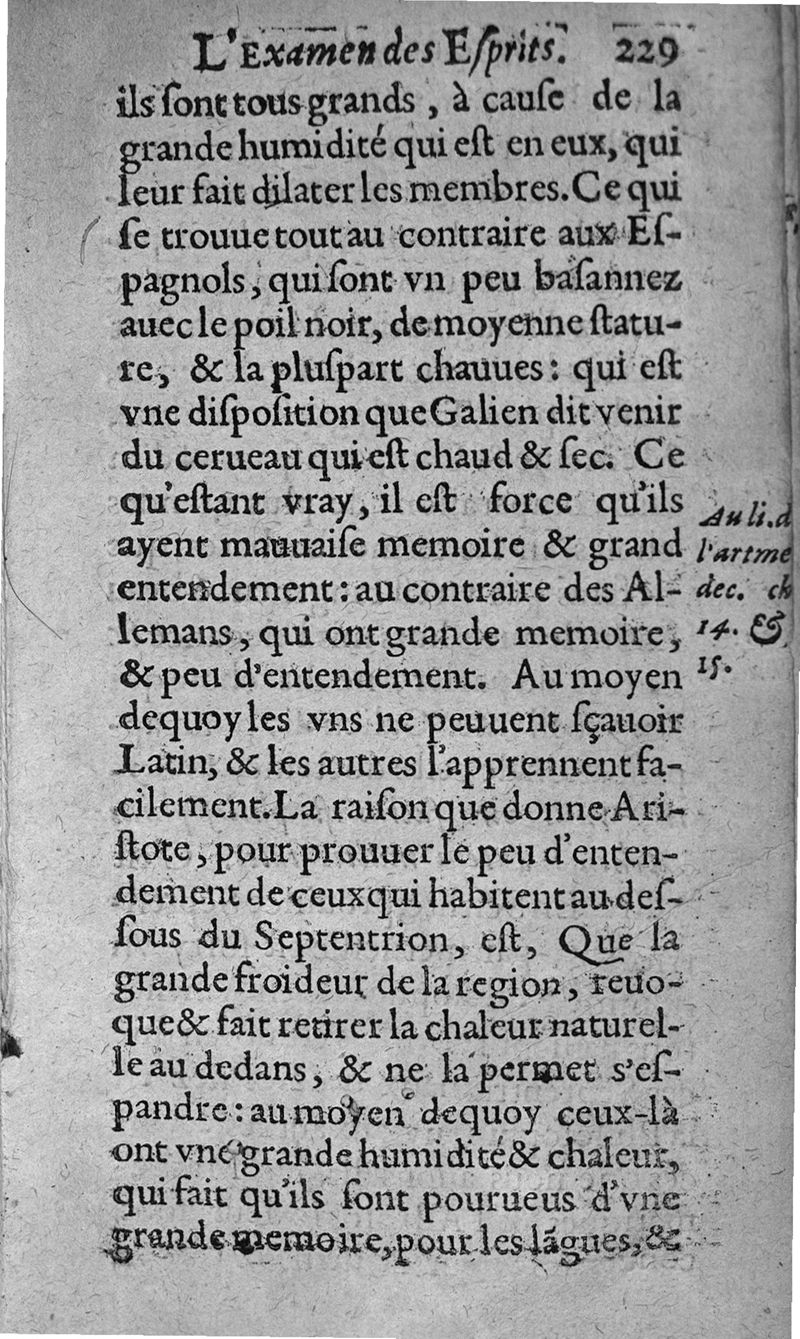 L'Examen des Eſprits. 229
ils ſont tous grands, à cauſe de la
grande humidité qui eſt en eux, qui
leur fait dilater les membres. Ce qui
ſe trouue tout au contraire aux Eſ-
pagnols, qui ſont vn peu baſannez
auec le poil noir, de moyenne ſtatu-
re, & la pluſpart chauues: qui eſt
vne diſpoſition que Galien dit venir
du cerueau qui eſt chaud & ſec. Ce
qu'eſtant vray, il eſt force qu'ils
ayent mauuaiſe memoire & grand
entendement: au contraire des Al-
lemans, qui ont grande memoire,
& peu d'entendement. Au moyen
dequoy les vns ne peuuent ſçauoir
Latin, & les autres l'apprennent fa-
cilement. La raiſon que donne Ari-
ſtote, pour prouuer le peu d'enten-
dement de ceux qui habitent au deſ-
ſous du Septentrion, eſt, Que la
grande froideur de la region, reuo-
que & fait retirer la chaleur naturel-
le au dedans, & ne la permet s'eſ-
pandre: au moyen dequoy ceux-là
ont vne grande humidité & chaleur,
qui fait qu'ils ſont pourueus d'vne
grande memoire, pour les lãgues, &
Au li. d
l'art me
dec. ch
14. &
15.